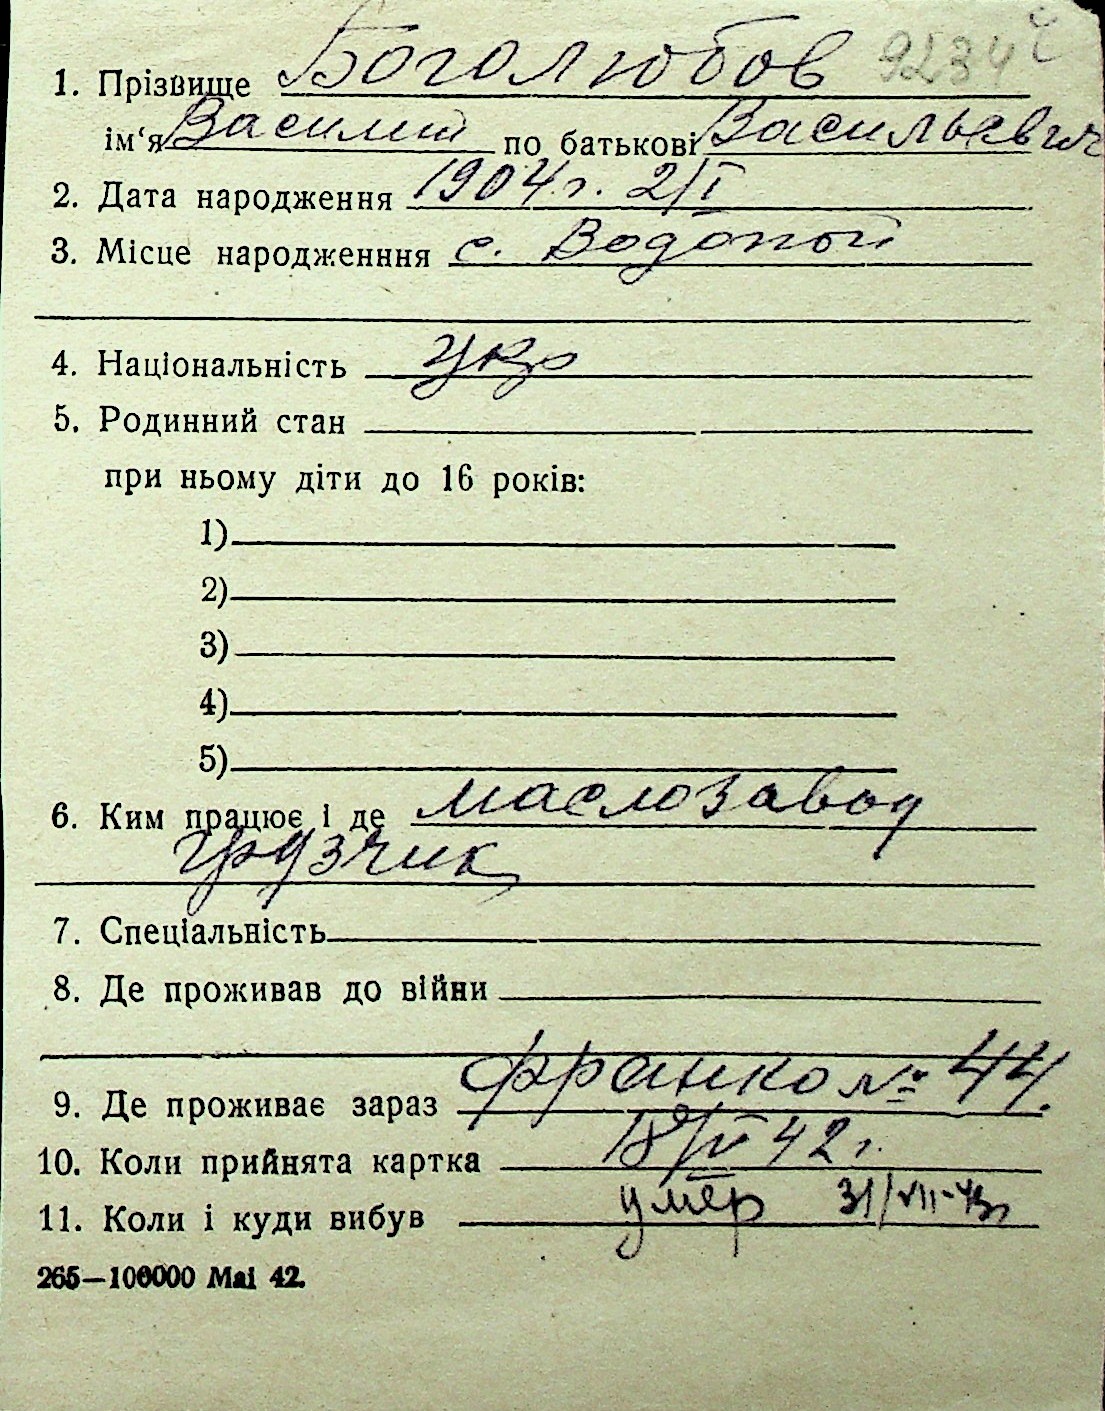 1. Прізвище Боголюбов 9234
ім'я Василий по батькові Васильевич
2. Дата народження 1904 г. 2/I
3. Місце народженння с. Водопой
4. Національність укр
5. Родинний стан
при ньому діти до 16 років:
1)
2)
3)
4)
5)
6. Ким працює і де маслозавод
грузчик
7. Спеціальність
8. Де проживав до війни
9. Де проживає зараз Франко № 44.
10. Коли прийнята картка 42 г.
11. Коли і куди вибув умер 31/VII-43г
265—100000 Mai 42.